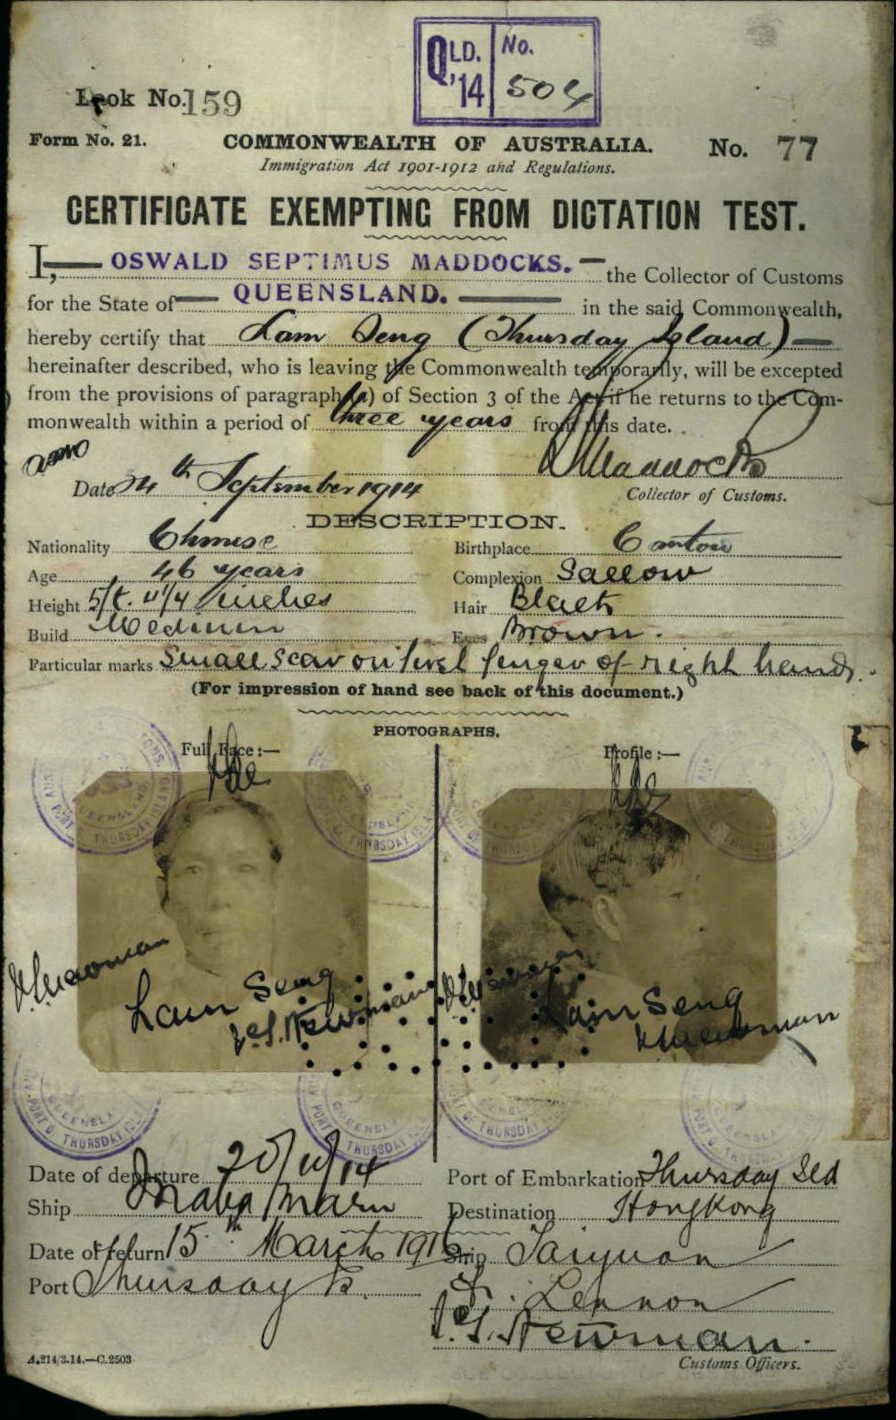 QLD. '14 No. 504
Book No. 159
Form No. 21. COMMONWEALTH OF AUSTRALIA. No. 77
Immigration Act 1901-1912 and Regulations.
CERTIFICATE EXEMPTING FROM DICTATION TEST.
I, OSWALD SEPTIMUS MADDOCKS. the Collector of Customs
for the State of QUEENSLAND. in the said Commonwealth,
hereby certify that Lam Seng (Thursday Island)
hereinafter described, who is leaving the Commonwealth temporarily, will be excepted
from the provisions of paragraph (a) of Section 3 of the Act if he returns to the Com-
monwealth within a period of three years from this date.
OSMaddocks
Date 24th September 1914 Collector of Customs.
DESCRIPTION.
Nationality Chinese Birthplace Canton
Age 46 years Complexion Sallow
Height 5ft. 4 1/4 inches Hair Black
Build Medium Eyes Brown.
Particular marks Small scar on first finger of right hand.
(For impression of hand see back of this document.)
PHOTOGRAPHS.
Full Face :— Profile :—
Lam Seng Lam Seng
J.S. Newman
PORT OF THURSDAY ISLAND
QUEENSLAND
Date of departure Port of Embarkation Thursday Isld
Ship Maru Destination Hongkong
Date of return 15th March 1916 Ship Taiyuan
Port Thursday Is. Lennon
J.S. Newman.
Customs Officers.
A.214/3.14.—C.2503